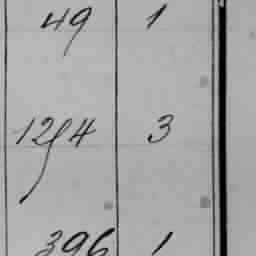 49 1
12/4 3
396 1